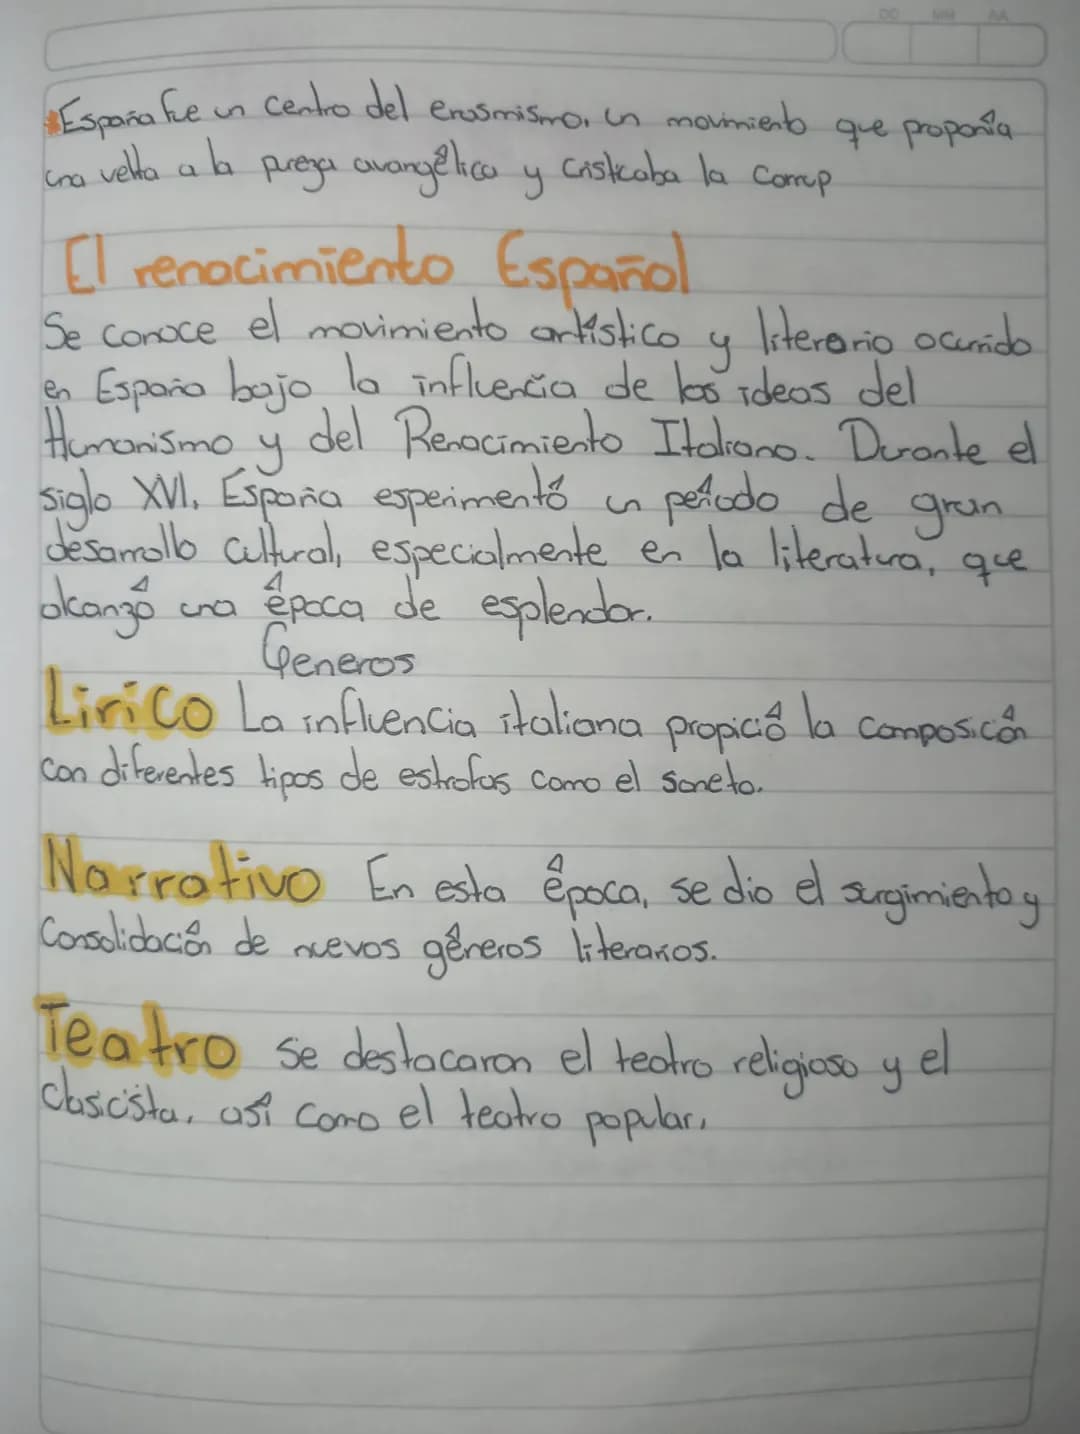 DD MM AA
*España fue un centro del erasmismo, un movimiento que proponía
una velta a la pureza avangélica y cristicaba la Corrup
El renacimiento Español
Se conoce el movimiento artístico y literario ocurrido
en España bajo la influencia de las ideas del
Humanismo y del Renacimiento Italiano. Durante el
siglo XVI, España esperimentó un período de gran
desarrollo Cultural, especialmente en la literatura, que
alcanzó una época de esplendor.
Generos
Lirico La influencia italiana propició la composicón
con diferentes tipos de estrofas como el soneto.
Narrativo En esta época, se dio el surgimiento y
Consolidación de nuevos géneros literarios.
Teatro se destacaron el teatro religioso y el
Clasicista, así como el teatro popular,